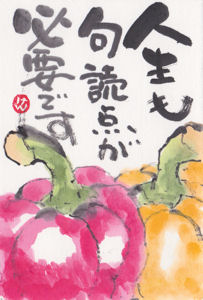 人生も
句読点が
必要です